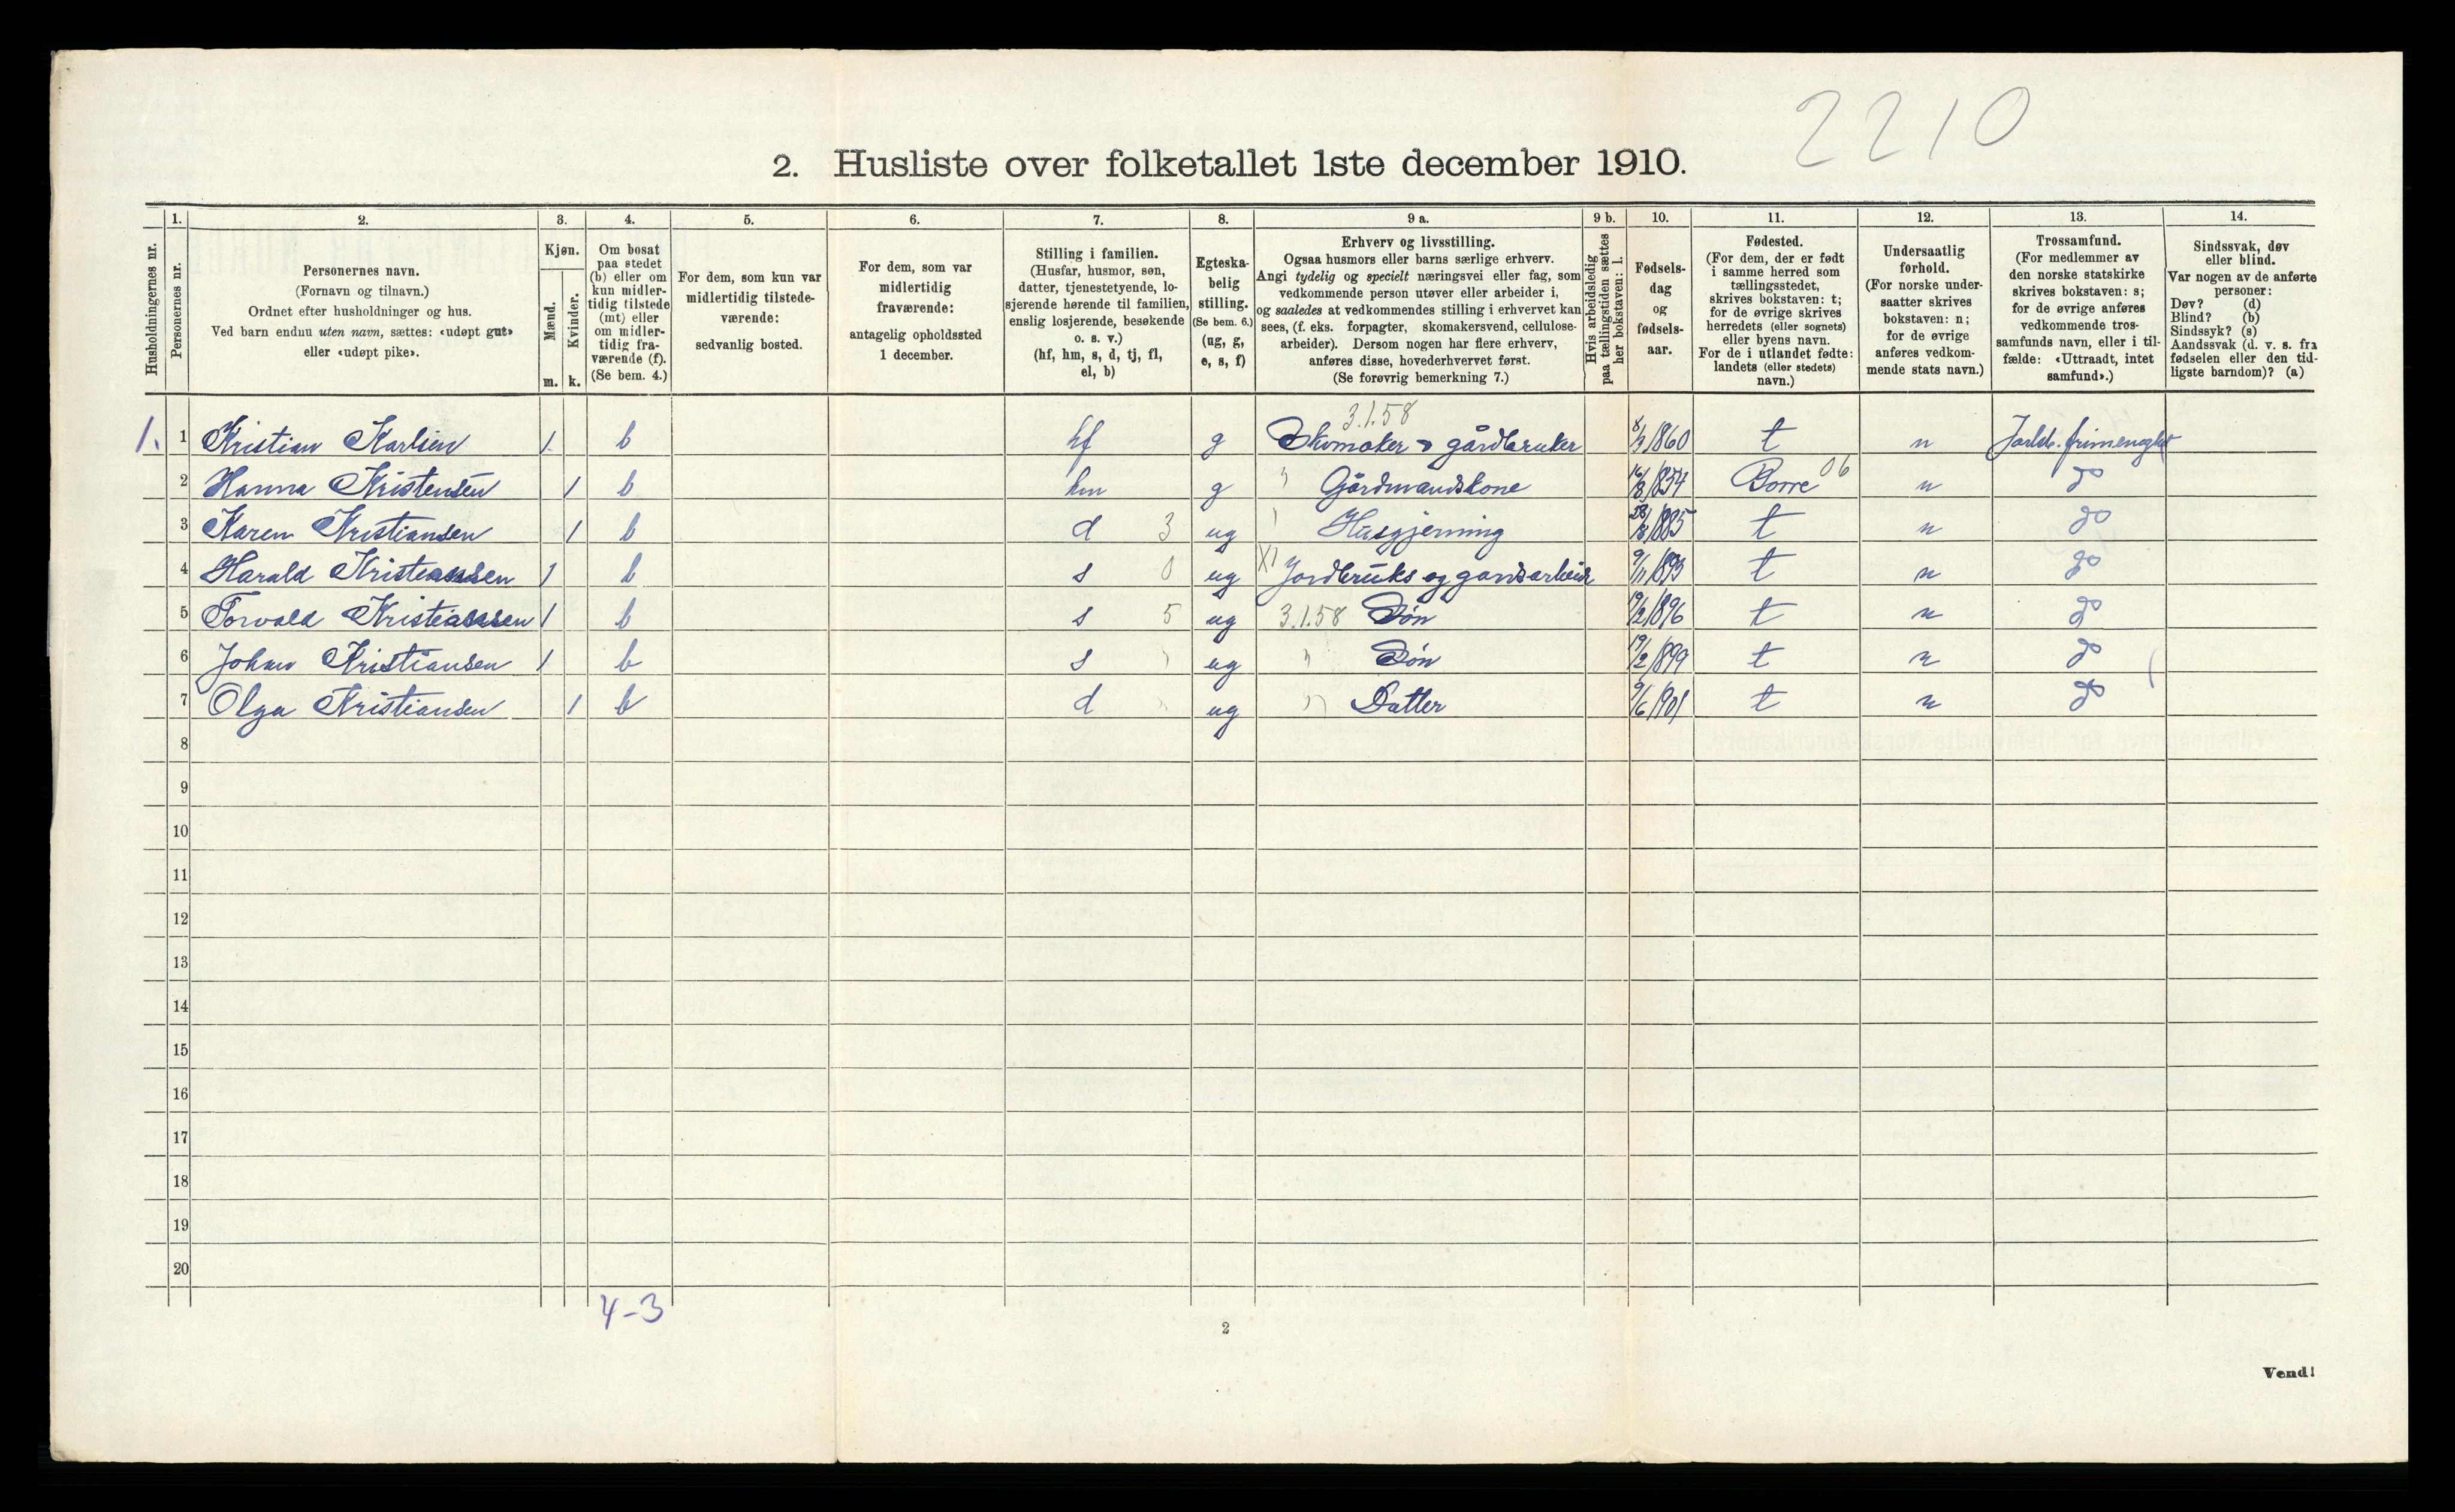 2210
2. Husliste over folketallet 1ste december 1910.
Husholdningernes nr.
1. Personernes nr.
2. Personernes navn.
(Fornavn og tilnavn.)
Ordnet efter husholdninger og hus.
Ved barn endnu uten navn, sættes: «udøpt gut»
eller «udøpt pike».
3. Kjøn.
Mænd. Kvinder.
m. k.
4. Om bosat
paa stedet
(b) eller om
kun midler-
tidig tilstede
(mt) eller
om midler-
tidig fra-
værende (f).
(Se bem. 4.)
5. For dem, som kun var
midlertidig tilstede-
værende:
sedvanlig bosted.
6. For dem, som var
midlertidig
fraværende:
antagelig opholdssted
1 december.
7. Stilling i familien.
(Husfar, husmor, søn,
datter, tjenestetyende, lo-
sjerende hørende til familien,
enslig losjerende, besøkende
o. s. v.)
(hf, hm, s, d, tj, fl,
el, b)
8. Egteska-
belig
stilling.
(Se bem. 6.)
(ug, g,
e, s, f)
9 a. Erhverv og livsstilling.
Ogsaa husmors eller barns særlige erhverv.
Angi tydelig og specielt næringsvei eller fag, som
vedkommende person utøver eller arbeider i,
og saaledes at vedkommendes stilling i erhvervet kan
sees, (f. eks. forpagter, skomakersvend, cellulose-
arbeider). Dersom nogen har flere erhverv,
anføres disse, hovederhvervet først.
(Se forøvrig bemerkning 7.)
9 b. Hvis arbeidsledig
paa tællingstiden sættes
her bokstaven: l.
10. Fødsels-
dag
og
fødsels-
aar.
11. Fødested.
(For dem, der er født
i samme herred som
tællingsstedet,
skrives bokstaven: t;
for de øvrige skrives
herredets (eller sognets)
eller byens navn.
For de i utlandet fødte:
landets (eller stedets)
navn.)
12. Undersaatlig
forhold.
(For norske under-
saatter skrives
bokstaven: n;
for de øvrige
anføres vedkom-
mende stats navn.)
13. Trossamfund.
(For medlemmer av
den norske statskirke
skrives bokstaven: s;
for de øvrige anføres
vedkommende tros-
samfunds navn, eller i til-
fælde: «Uttraadt, intet
samfund».)
14. Sindssvak, døv
eller blind.
Var nogen av de anførte
personer:
Døv? (d)
Blind? (b)
Sindssyk? (s)
Aandssvak (d. v. s. fra
fødselen eller den tid-
ligste barndom)? (a)
3.1.58
1. 1 Kristian Karlsen 1 b hf g Skomaker & gårdbruker 1860 t n
2 Hanna Kristensen 1 b hm g " Gårdmandskone 1854 Borre 06 n do
3 Karen Kristiansen 1 b d 3 ug " Husgjerning 1885 t n do
4 Harald Kristiansen 1 b s 0 ug X1 Jordbruks og 9/11 1893 t n do
5 Torvald Kristiansen 1 b s 5 ug 3.1.58 Søn 19/2 1896 t n do
6 Johan Kristiansen 1 b s " ug " Søn 19/2 1899 t n do
7 Olga Kristiansen 1 b d " ug " Datter 9/6 1901 t n do
8
9
10
11
12
13
14
15
16
17
18
19
20
4-3
2
Vend!